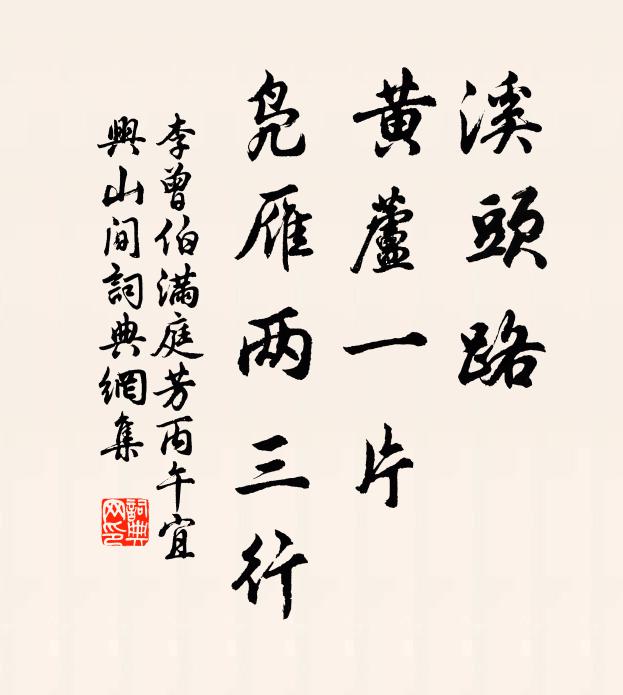 溪頭路
黃蘆一片
凫雁两三行
李曾伯满庭芳丙午宜
興山间詞典網集
詞典
网印